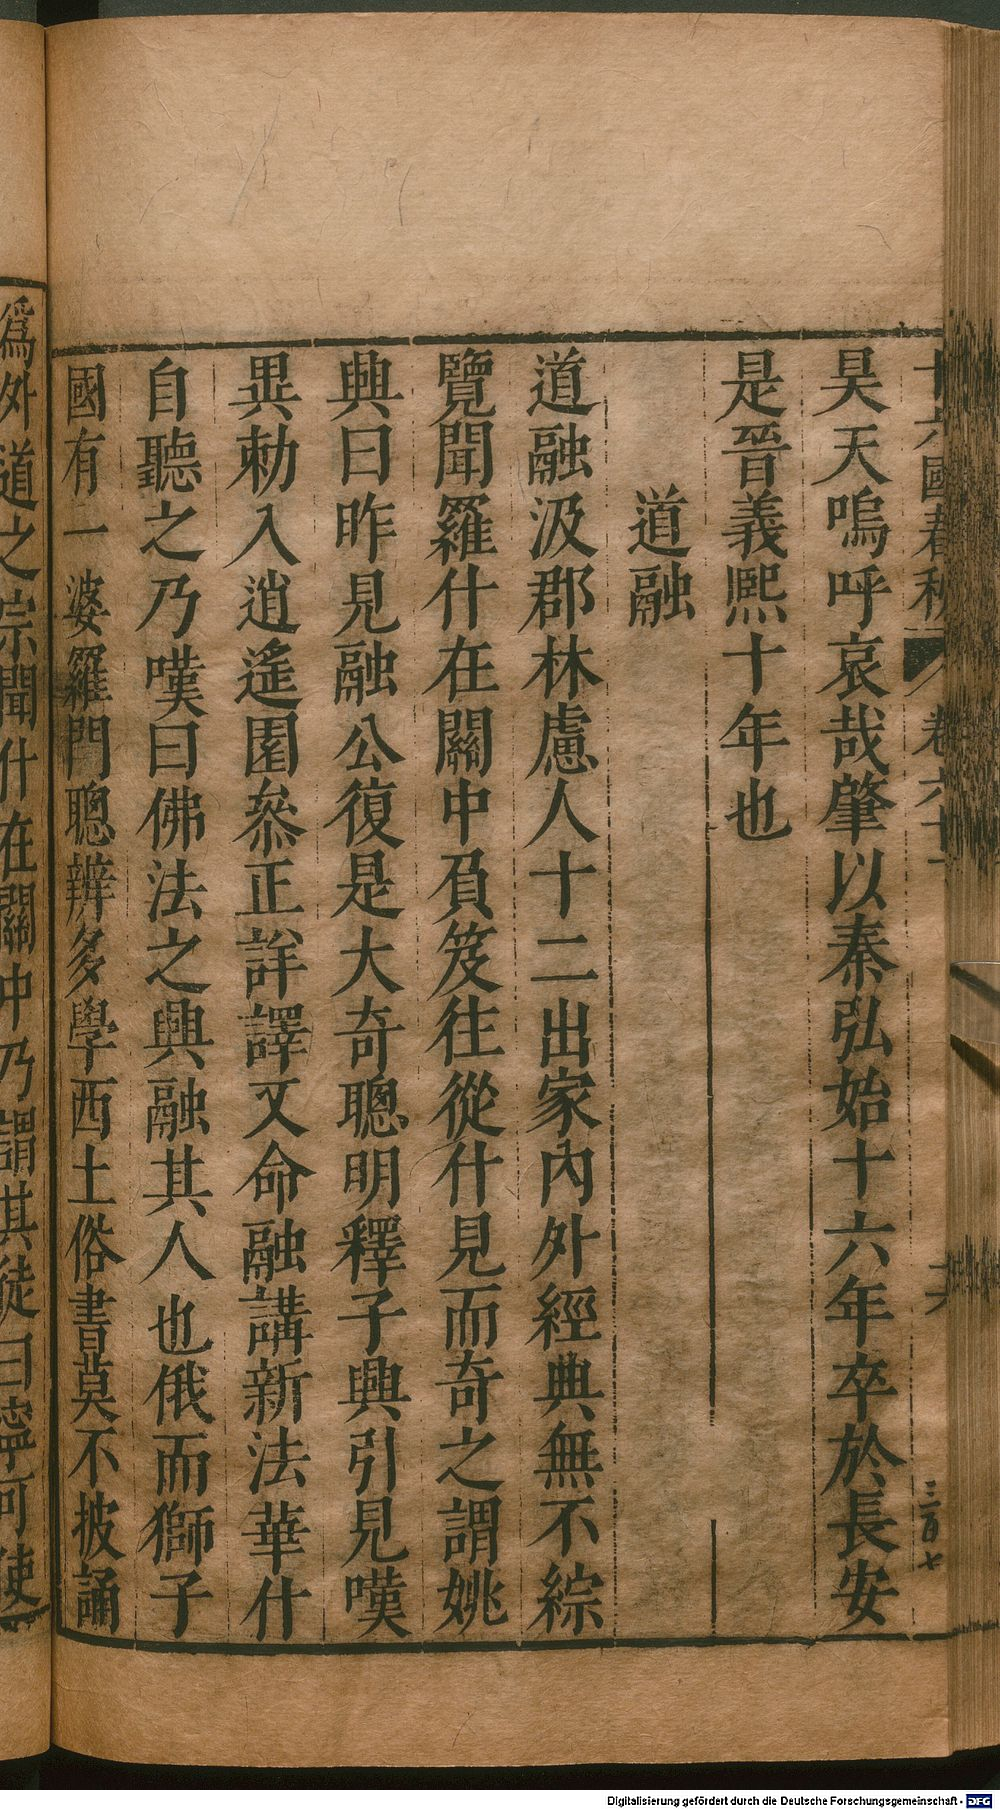 十六國春秋 卷六十 六 三百七
昊天嗚呼哀哉肇以秦弘始十六年卒於長安
是晉義熙十年也
道融
道融汲郡林慮人十二出家內外經典無不綜
覽聞羅什在關中負笈往從什見而奇之謂姚
興曰昨見融公復是大奇聰明釋子興引見嘆
異勅入逍遙園叅正詳譯又命融講新法華什
自聽之乃嘆曰佛法之興融其人也俄而獅子
國有一婆羅門聰辨多學西土俗書莫不披誦
爲外道之宗聞什在關中乃謂其徒曰寧可使
Digitalisierung gefördert durch die Deutsche Forschungsgemeinschaft - DFG